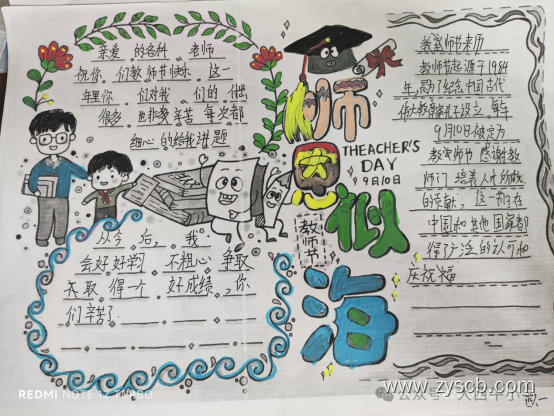 亲爱的各科老师
祝你们教师节快乐，这一
年里你们对我们的付出
很多也非常辛苦每次都
细心的给我讲题
从今后，我
会好好学习不粗心争取
天取得一个好成绩，你
们辛苦了
师恩似海
THEACHER'S
DAY
9月10日
教师节
教室师节来历
教师节起源于1984
年，
9月10日被定为
教室师节感谢教
师们培养人才所做
的贡献，这一节在
中国和其他国家都
得广泛的认可和
庆祝福
REDMI NOTE 12 TURBO
www.zyscb.com